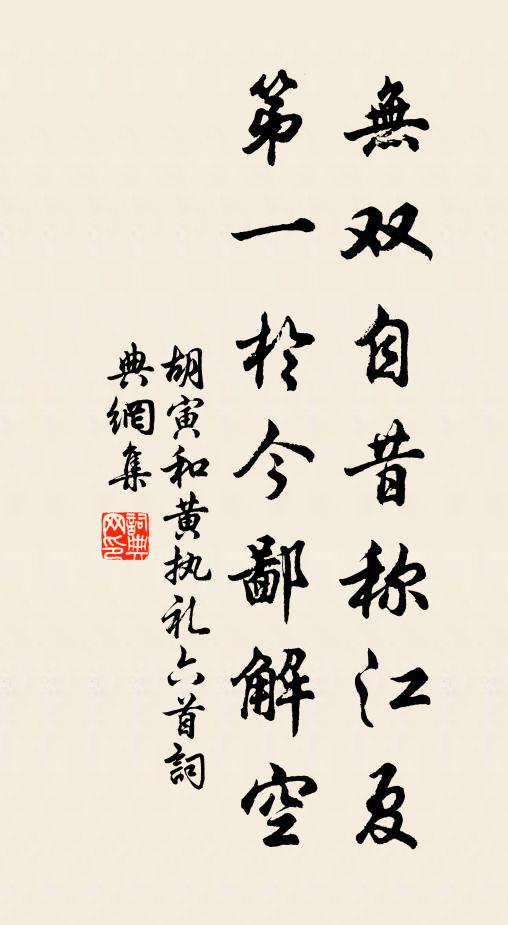 無双自昔称江夏
第一於今鄙解空
胡寅和黄执礼六首詞
典網集
詞典
网印